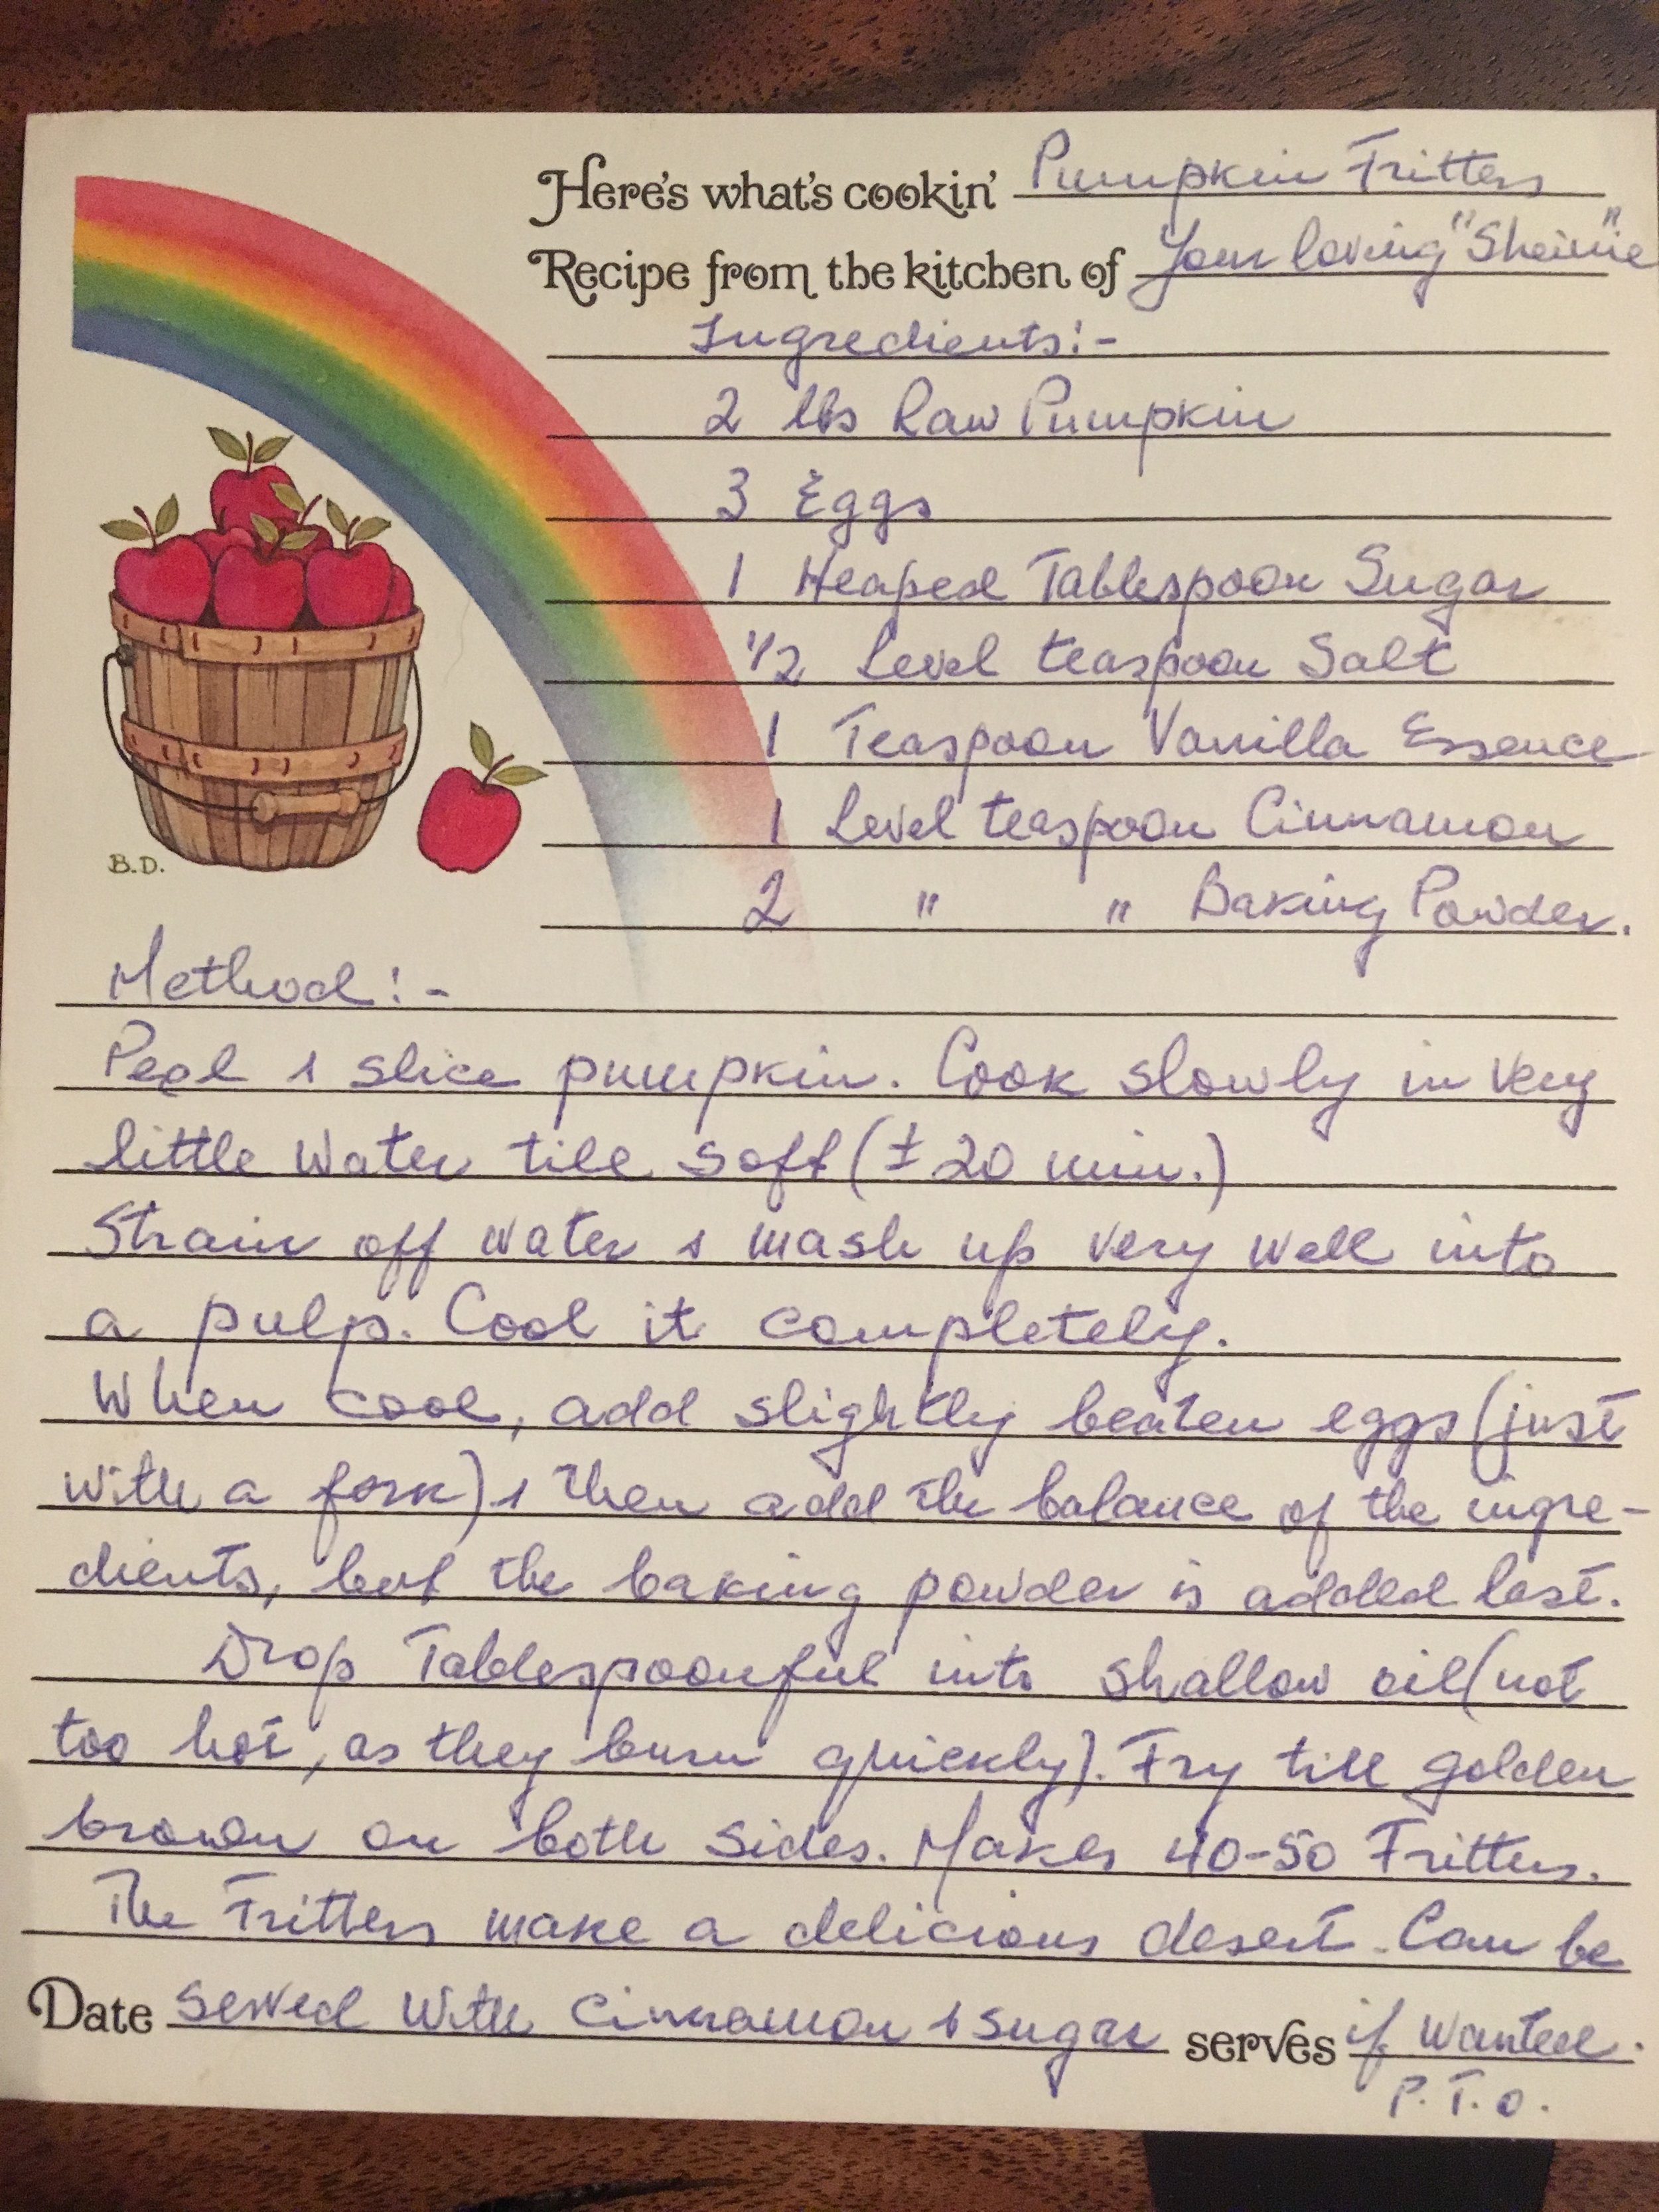 Here's what's cookin' Pumpkin Fritters
Recipe from the kitchen of Your loving "Sheinie"
Ingredients:-
2 lbs Raw Pumpkin
3 Eggs
1 Heaped Tablespoon Sugar
1/2 Level teaspoon Salt
1 Teaspoon Vanilla Essence
1 Level teaspoon Cinnamon
2 " " Baking Powder.
B.D.
Method:-
Peel & slice pumpkin. Cook slowly in very
little water till soft (± 20 min.)
Strain off water & mash up very well into
a pulp. Cool it completely.
When cool, add slightly beaten eggs (just
with a fork) & then add the balance of the ingre-
dients, but the baking powder is added last.
Drop Tablespoonful into shallow oil (not
too hot, as they burn quickly). Fry till golden
brown on both sides. Makes 40-50 Fritters.
The Fritters make a delicious desert. Can be
Date served with cinnamon & sugar serves if wanted.
P.T.O.